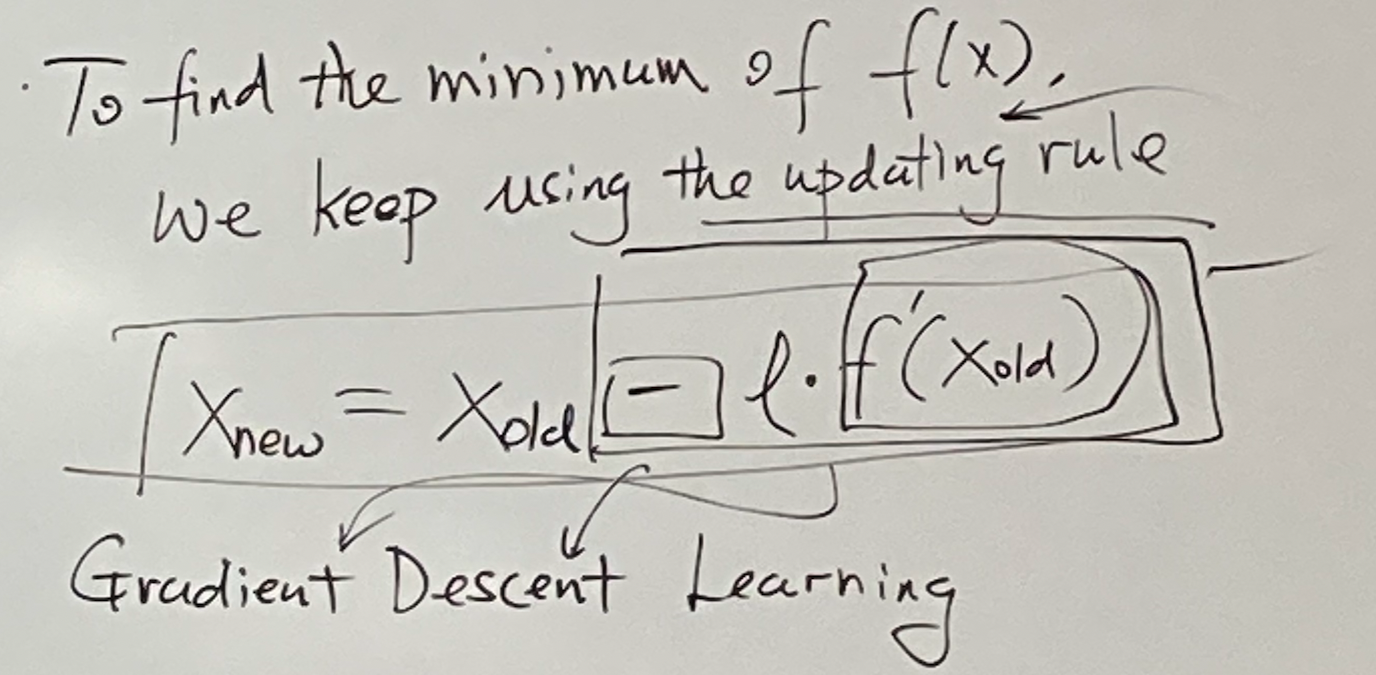 To find the minimum of f(x),
we keep using the updating rule
Xnew = Xold - l · f'(Xold)
Gradient Descent Learning